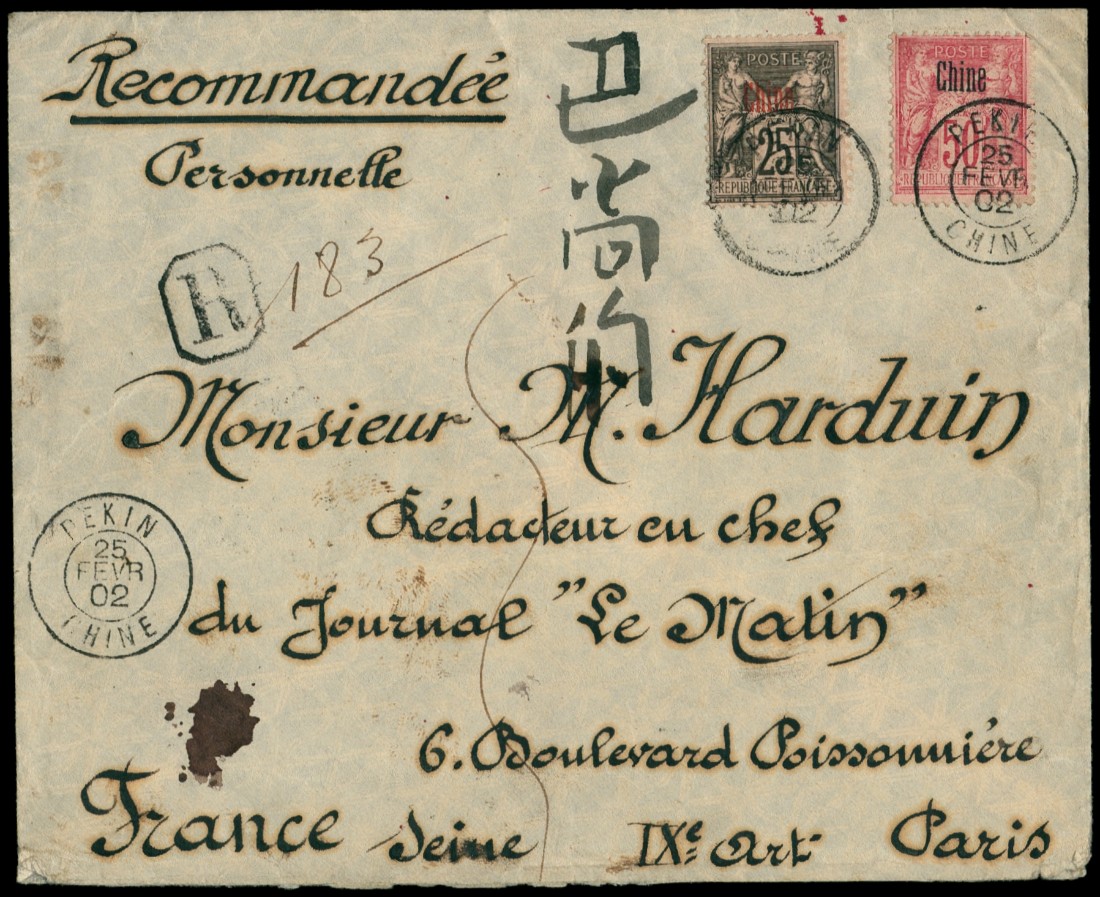 Recommandée
Personnelle
R
183
POSTE
Chine
25
REPUBLIQUE FRANÇAISE
POSTE
Chine
50
PEKIN
25
FEVR
02
CHINE
Monsieur M. Harduin
Rédacteur en chef
du Journal "Le Matin"
6. Boulevard Poissonnière
France Seine IXe Art Paris
PEKIN
25
FEVR
02
CHINE